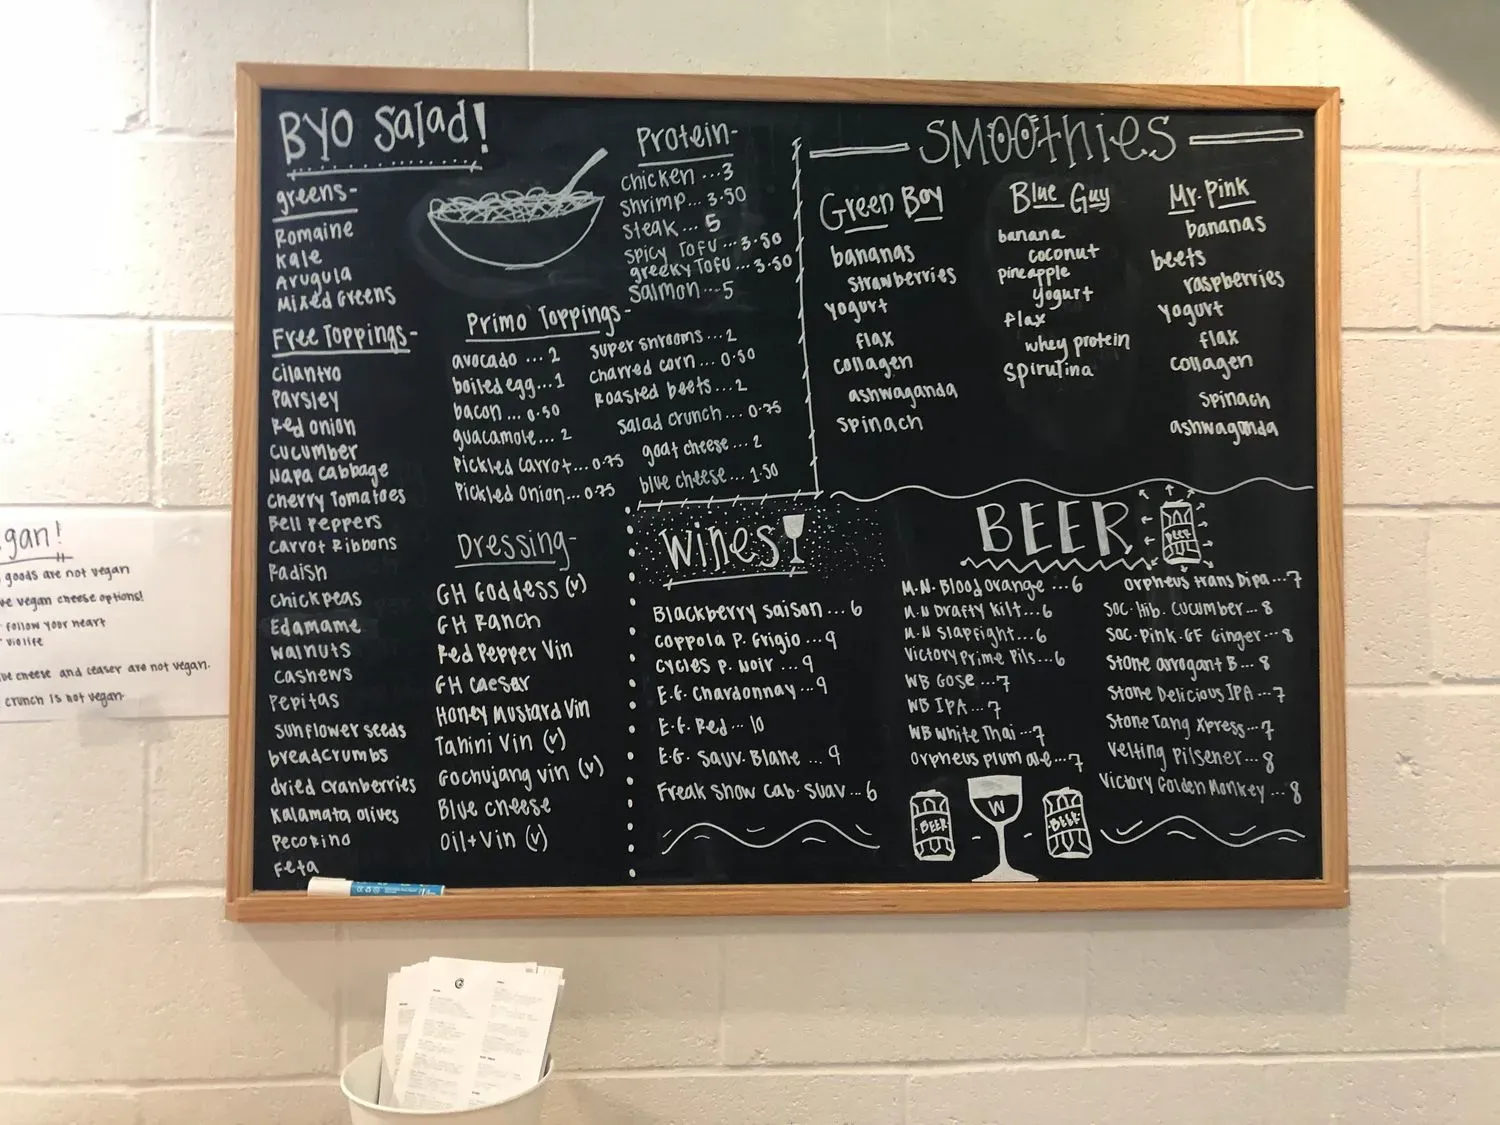 BYO Salad!
greens-
Romaine
Kale
Arugula
Mixed Greens
Free Toppings-
Cilantro
Parsley
Red onion
Cucumber
Napa Cabbage
Cherry Tomatoes
Bell Peppers
Carrot Ribbons
Radish
Chickpeas
Edamame
Walnuts
Cashews
Pepitas
Sunflower seeds
breadcrumbs
dried cranberries
Kalamata olives
Pecorino
Feta
Protein-
chicken ...3
shrimp... 3.50
steak ... 5
spicy Tofu ...3.50
greeky Tofu ...3.50
Salmon...5
Primo Toppings-
avocado ... 2
boiled egg...1
bacon ... 0.50
guacamole... 2
Pickled Carrot...0.75
Pickled Onion...0.75
super shrooms...2
charred corn...0.50
Roasted beets...2
salad crunch...0.75
goat cheese...2
blue cheese...1.50
Dressing-
GH Goddess (v)
GH Ranch
Red Pepper Vin
GH Caesar
Honey Mustard Vin
Tahini Vin (v)
Gochujang vin (v)
Blue cheese
Oil+Vin (v)
Smoothies
Green Boy
bananas
strawberries
yogurt
flax
collagen
ashwaganda
spinach
Blue Guy
banana
coconut
pineapple
yogurt
flax
whey protein
spirulina
Mr. Pink
bananas
beets
raspberries
yogurt
flax
collagen
spinach
ashwaganda
Wines
Blackberry Saison...6
Coppola P. Grigio...9
Cycles P. Noir ...9
E.G. Chardonnay...9
E.G. Red... 10
E.G. Sauv. Blanc ...9
Freak Show Cab. Suav...6
BEER
BEER
M.N. Blood Orange ...6
M.N Drafty Kilt...6
M.N Slapfight...6
Victory Prime Pils...6
WB Gose ...7
WB IPA...7
WB White Thai...7
Orpheus plum ale...7
Orpheus Trans Dipa...7
Soc. Hib. Cucumber...8
Soc. Pink. GF Ginger...8
Stone arrogant B...8
Stone Delicious IPA...7
Stone Tang Xpress...7
Velting Pilsener...8
Victory Golden Monkey...8
BEER
W
BEER
gan!
goods are not vegan
ve vegan cheese options!
follow your heart
violife
ue cheese and ceaser are not vegan.
crunch is not vegan.